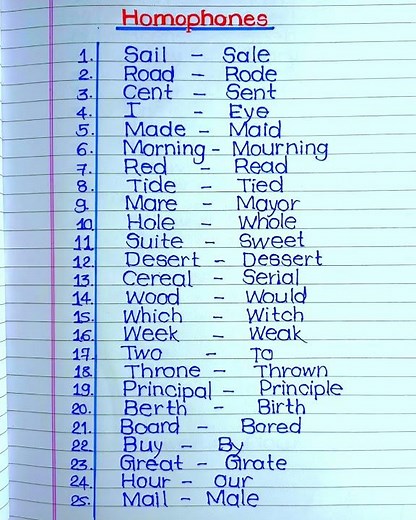 Homophones
1. Sail - Sale
2. Road - Rode
3. Cent - Sent
4. I - Eye
5. Made - Maid
6. Morning - Mourning
7. Red - Read
8. Tide - Tied
9. Mare - Mayor
10. Hole - Whole
11. Suite - Sweet
12. Desert - Dessert
13. Cereal - Serial
14. Wood - Would
15. Which - Witch
16. Week - Weak
17. Two - To
18. Throne - Thrown
19. Principal - Principle
20. Berth - Birth
21. Board - Bored
22. Buy - By
23. Great - Grate
24. Hour - Our
25. Mail - Male